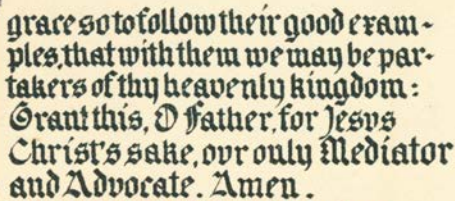 grace so to follow their good exam-
ples, that with them we may be par-
takers of thy heavenly kingdom:
Grant this, O Father, for Jesvs
Christ's sake, ovr only Mediator
and Advocate. Amen.